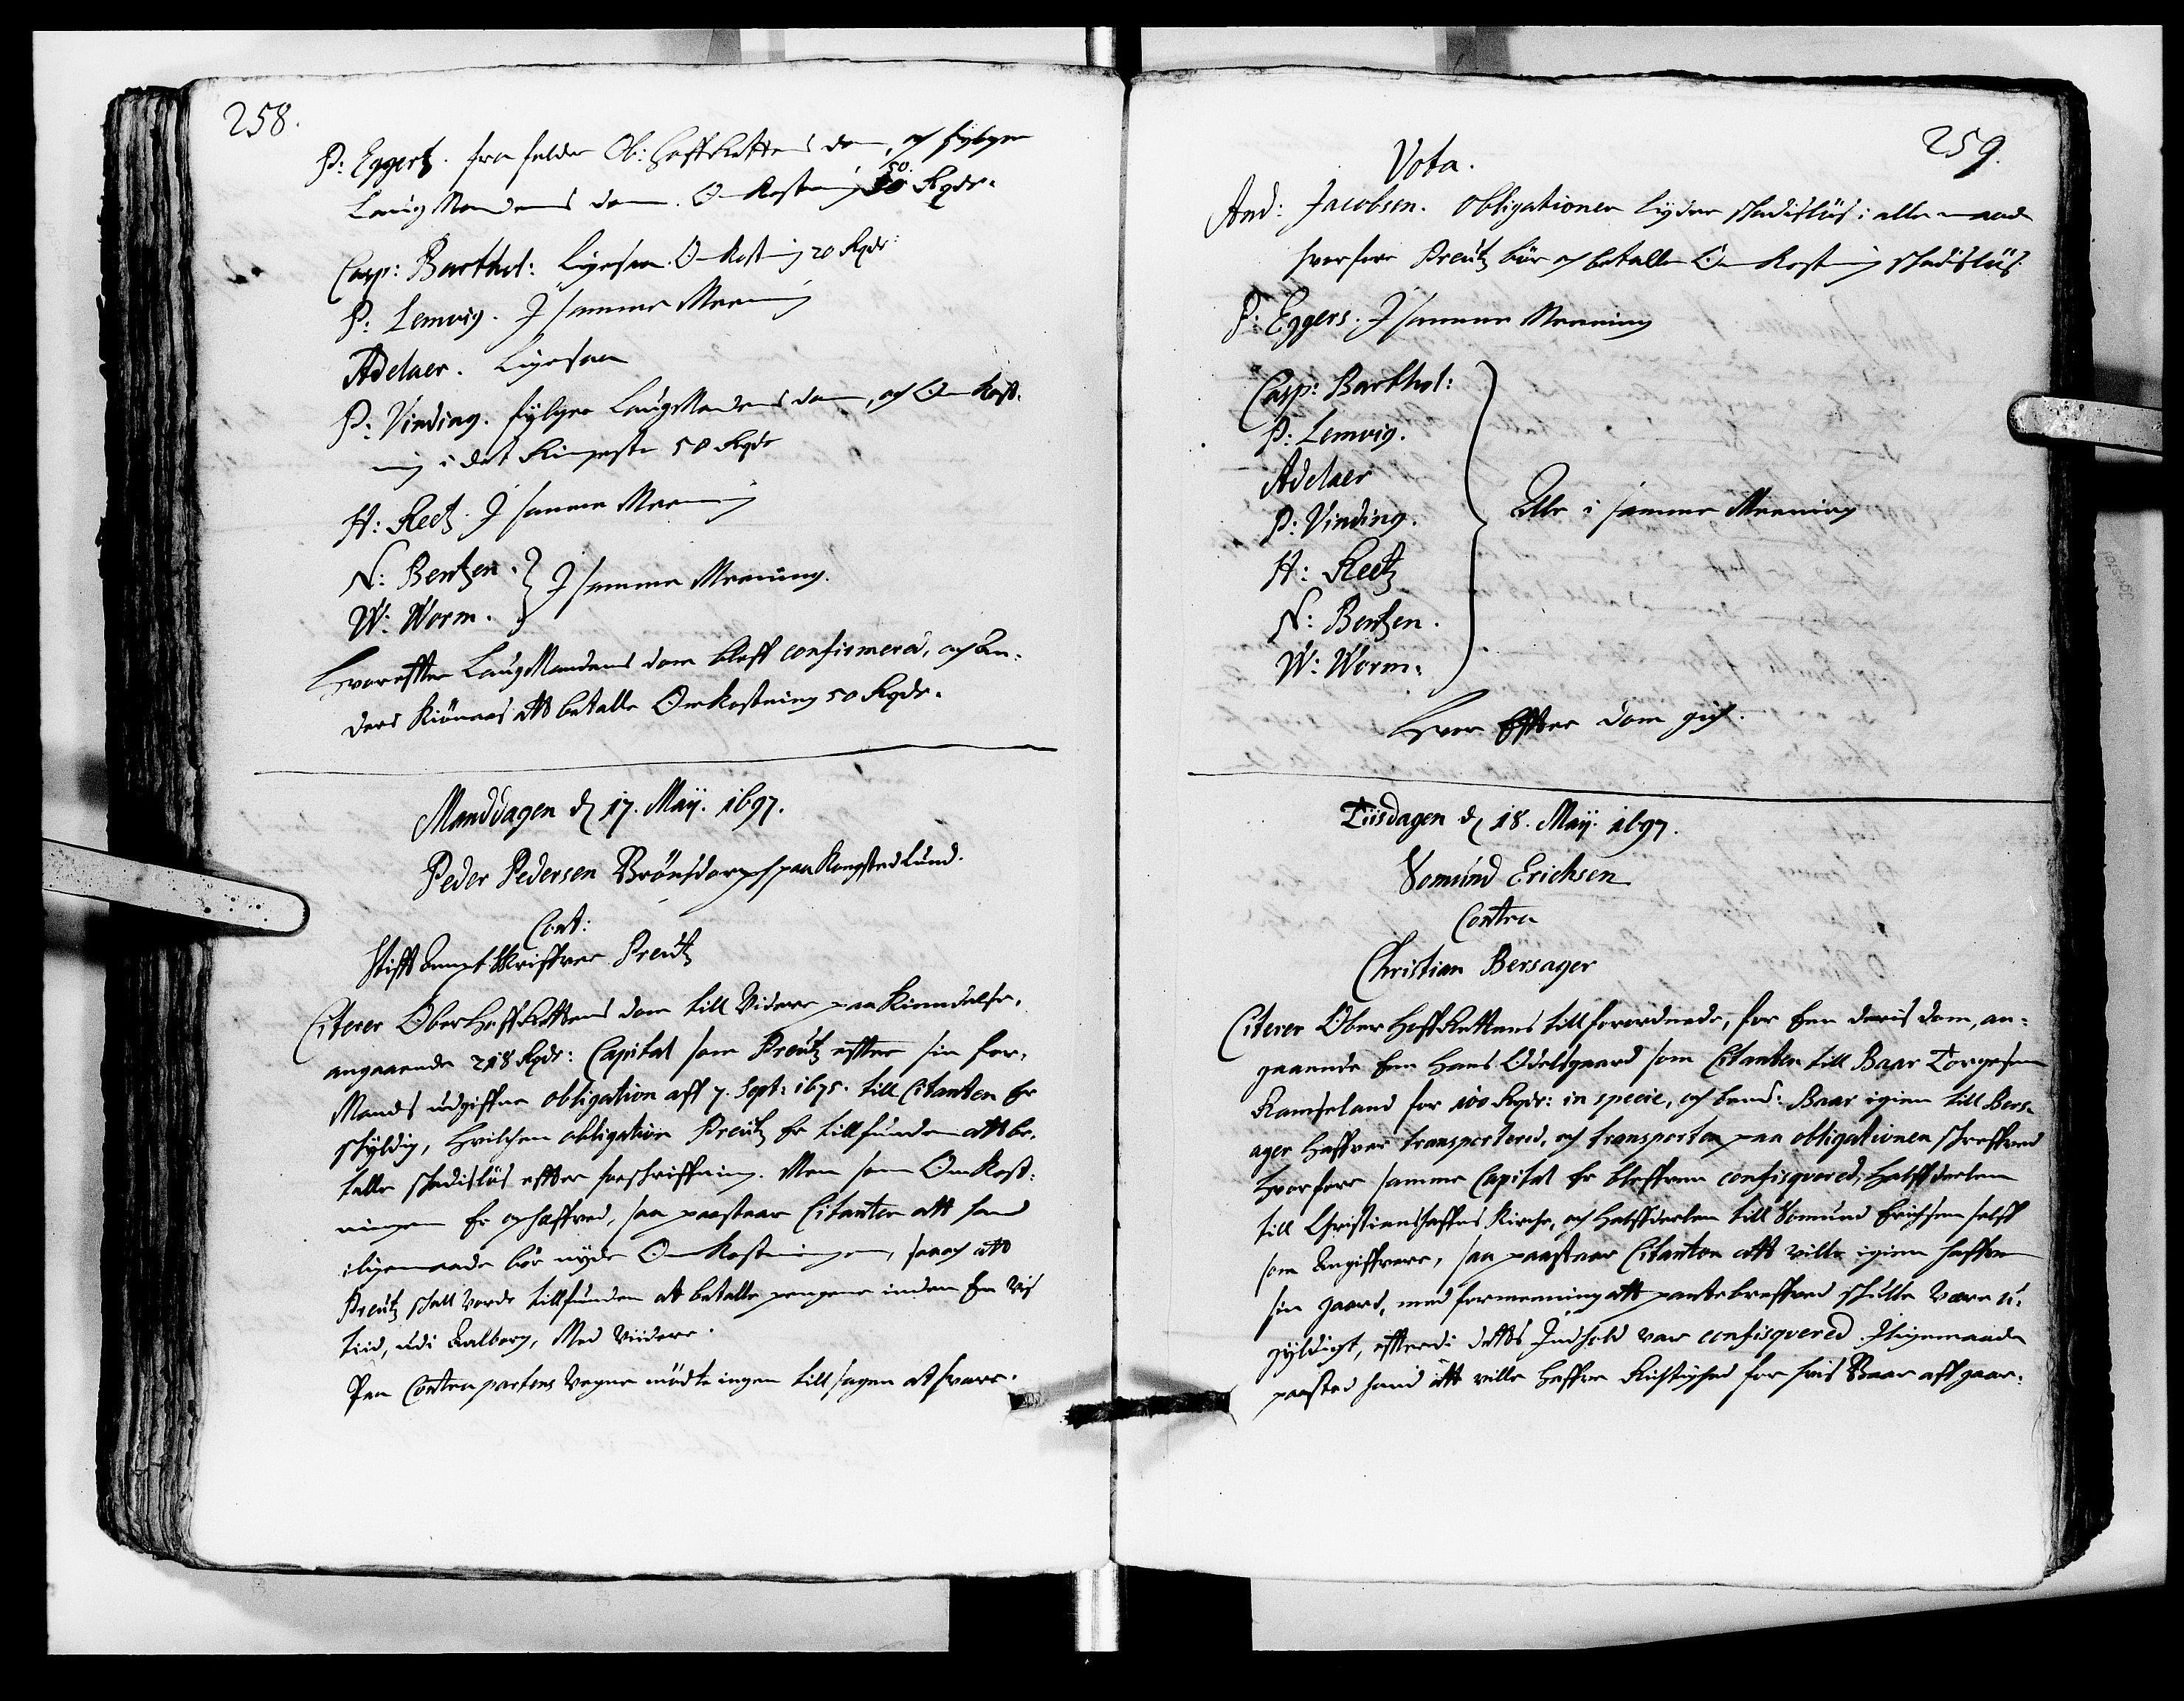 258.
P: Eggertz. fra falder Ob: HoffRettens dom, og fylger
LaugMandens dom. Omkostning 50 Rgdr.
Casp: Barthol: Ligesaa. Omkostning 20 Rgdr:
P: Lemvig. J samme Meening
Adelaer. Ligesaa
P: Vinding. fylger LaugMandens dom, og Omkost-
ning i det Ringeste 50 Rgdr
H: Reetz. J samme Meening
N: Bentzen.
W: Worm. } J samme Meening.
Hvorefter LaugMandens dom bleff confirmered, og An-
ders kiönnes att betalle Omkostning 50 Rgdr.
Manddagen d. 17. Maÿ. 1697.
Peder Pedersen Brönsdorph paa KongstedLund.
Cont:
Stifft Ampt Skriffver Preutz
Citerer OberHoffRettens dom till Videre paakiendelse,
angaaende 218 Rgdr: Capital som Preutz effter sin for-
Mands udgiffne obligation aff 7. Sept: 1675. till Citanten er
skyldig, Hvilchen obligation Preutz er tillfunden att be-
talle skadisløs effter forskriffning. Men som Omkost-
ningen er ophæffved, saa paastaar Citanten att hand
iligemaade bör nyde Omkostningen, saa og att
Preutz skall vorde tillfunden at betalle pengene inden en vis
tiid, udi Aalborg, Med Viidere.
Paa Contrapartens Vegne mödte ingen till sagen at svare.
259.
Vota.
And: Jacobsen. obligationen lyder skadisløs i alle maade
hvorfore Preutz bör og betalle Omkostning skadisløs.
P: Eggers. J samme Meening
Casp: Barthol:
P: Lemvig.
Adelaer
P: Vinding.
H: Reetz
N: Bentzen.
W: Worm.
Alle i samme Meening
Hvor Effter dom gich.
Tiisdagen d. 18. Maÿ. 1697.
Vomund Erichsen
Contra
Christian Bersager
Citerer Ober HoffRettens tillforordnede, for Een deris dom, an-
gaaende Een Hans Odelsgaard som Citanten till Baar Torgesen
Ramseland for 100 Rgdr: in specie, og bemt: Baar igien till Bers-
ager Haffver transportered, og transporten paa obligationen skreffved
Hvorfore samme Capital er bleffven confisqvered, Halffdeelen
till Christianshaffns Kirche, og Halffdeelen till Vomund Erichsen selff
som Angiffvere, saa paastaar Citanten att ville igien haffve
sin gaard, med formeening att pantebreffved skulle være u-
gyldigt, efftterdi detts Indhold var confisqvered. Iligemaade
paastod hand att ville haffve Richtighed for hvis Baar aff gaar-